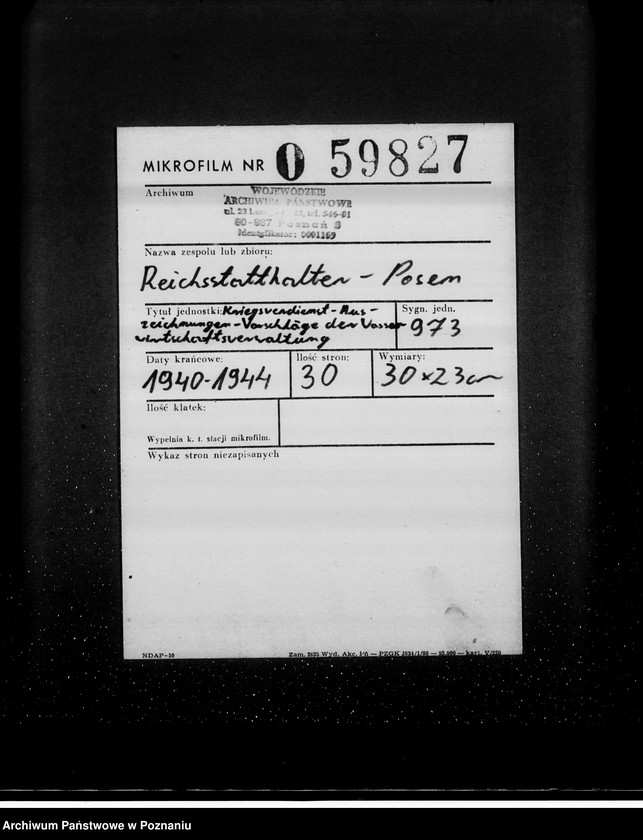 MIKROFILM NR 0 59827
Archiwum
WOJEWÓDZKIE
ARCHIWUM PAŃSTWOWE
ul. 23 tel. 546-01
60-967 Poznań 3
Identyfikator: 0001169
Nazwa zespołu lub zbioru:
Reichsstatthalter - Posen
Tytuł jednostki: Kriegsverdienst-Aus-
zeichnungen-Vorschläge der Wasser
wirtschaftsverwaltung
Sygn. jedn.
973
Daty krańcowe:
1940-1944
Ilość stron:
30
Wymiary:
30 x 23 cm
Ilość klatek:
Wypełnia k. t. stacji mikrofilm.
Wykaz stron niezapisanych
NDAP-10
Zam. Wyd. Akc. — PZGK — kart. V/250
Archiwum Państwowe w Poznaniu